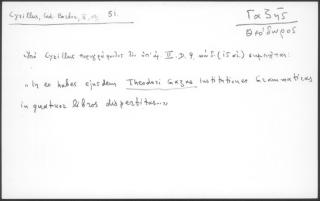 Cyrillus, Cod. Borbon., II, σ. 51.
Γαζῆς
Θεόδωρος
Ὁ Cyrillus περιγράφων τὸν ὑπ' ἀρ. III. D. 9 κώδ. (ις αἰ.) σημειοῖ:
"In eo habes ejusdem Theodori Gazae Institutiones Grammaticas
in quatuor libros dispertitas..."